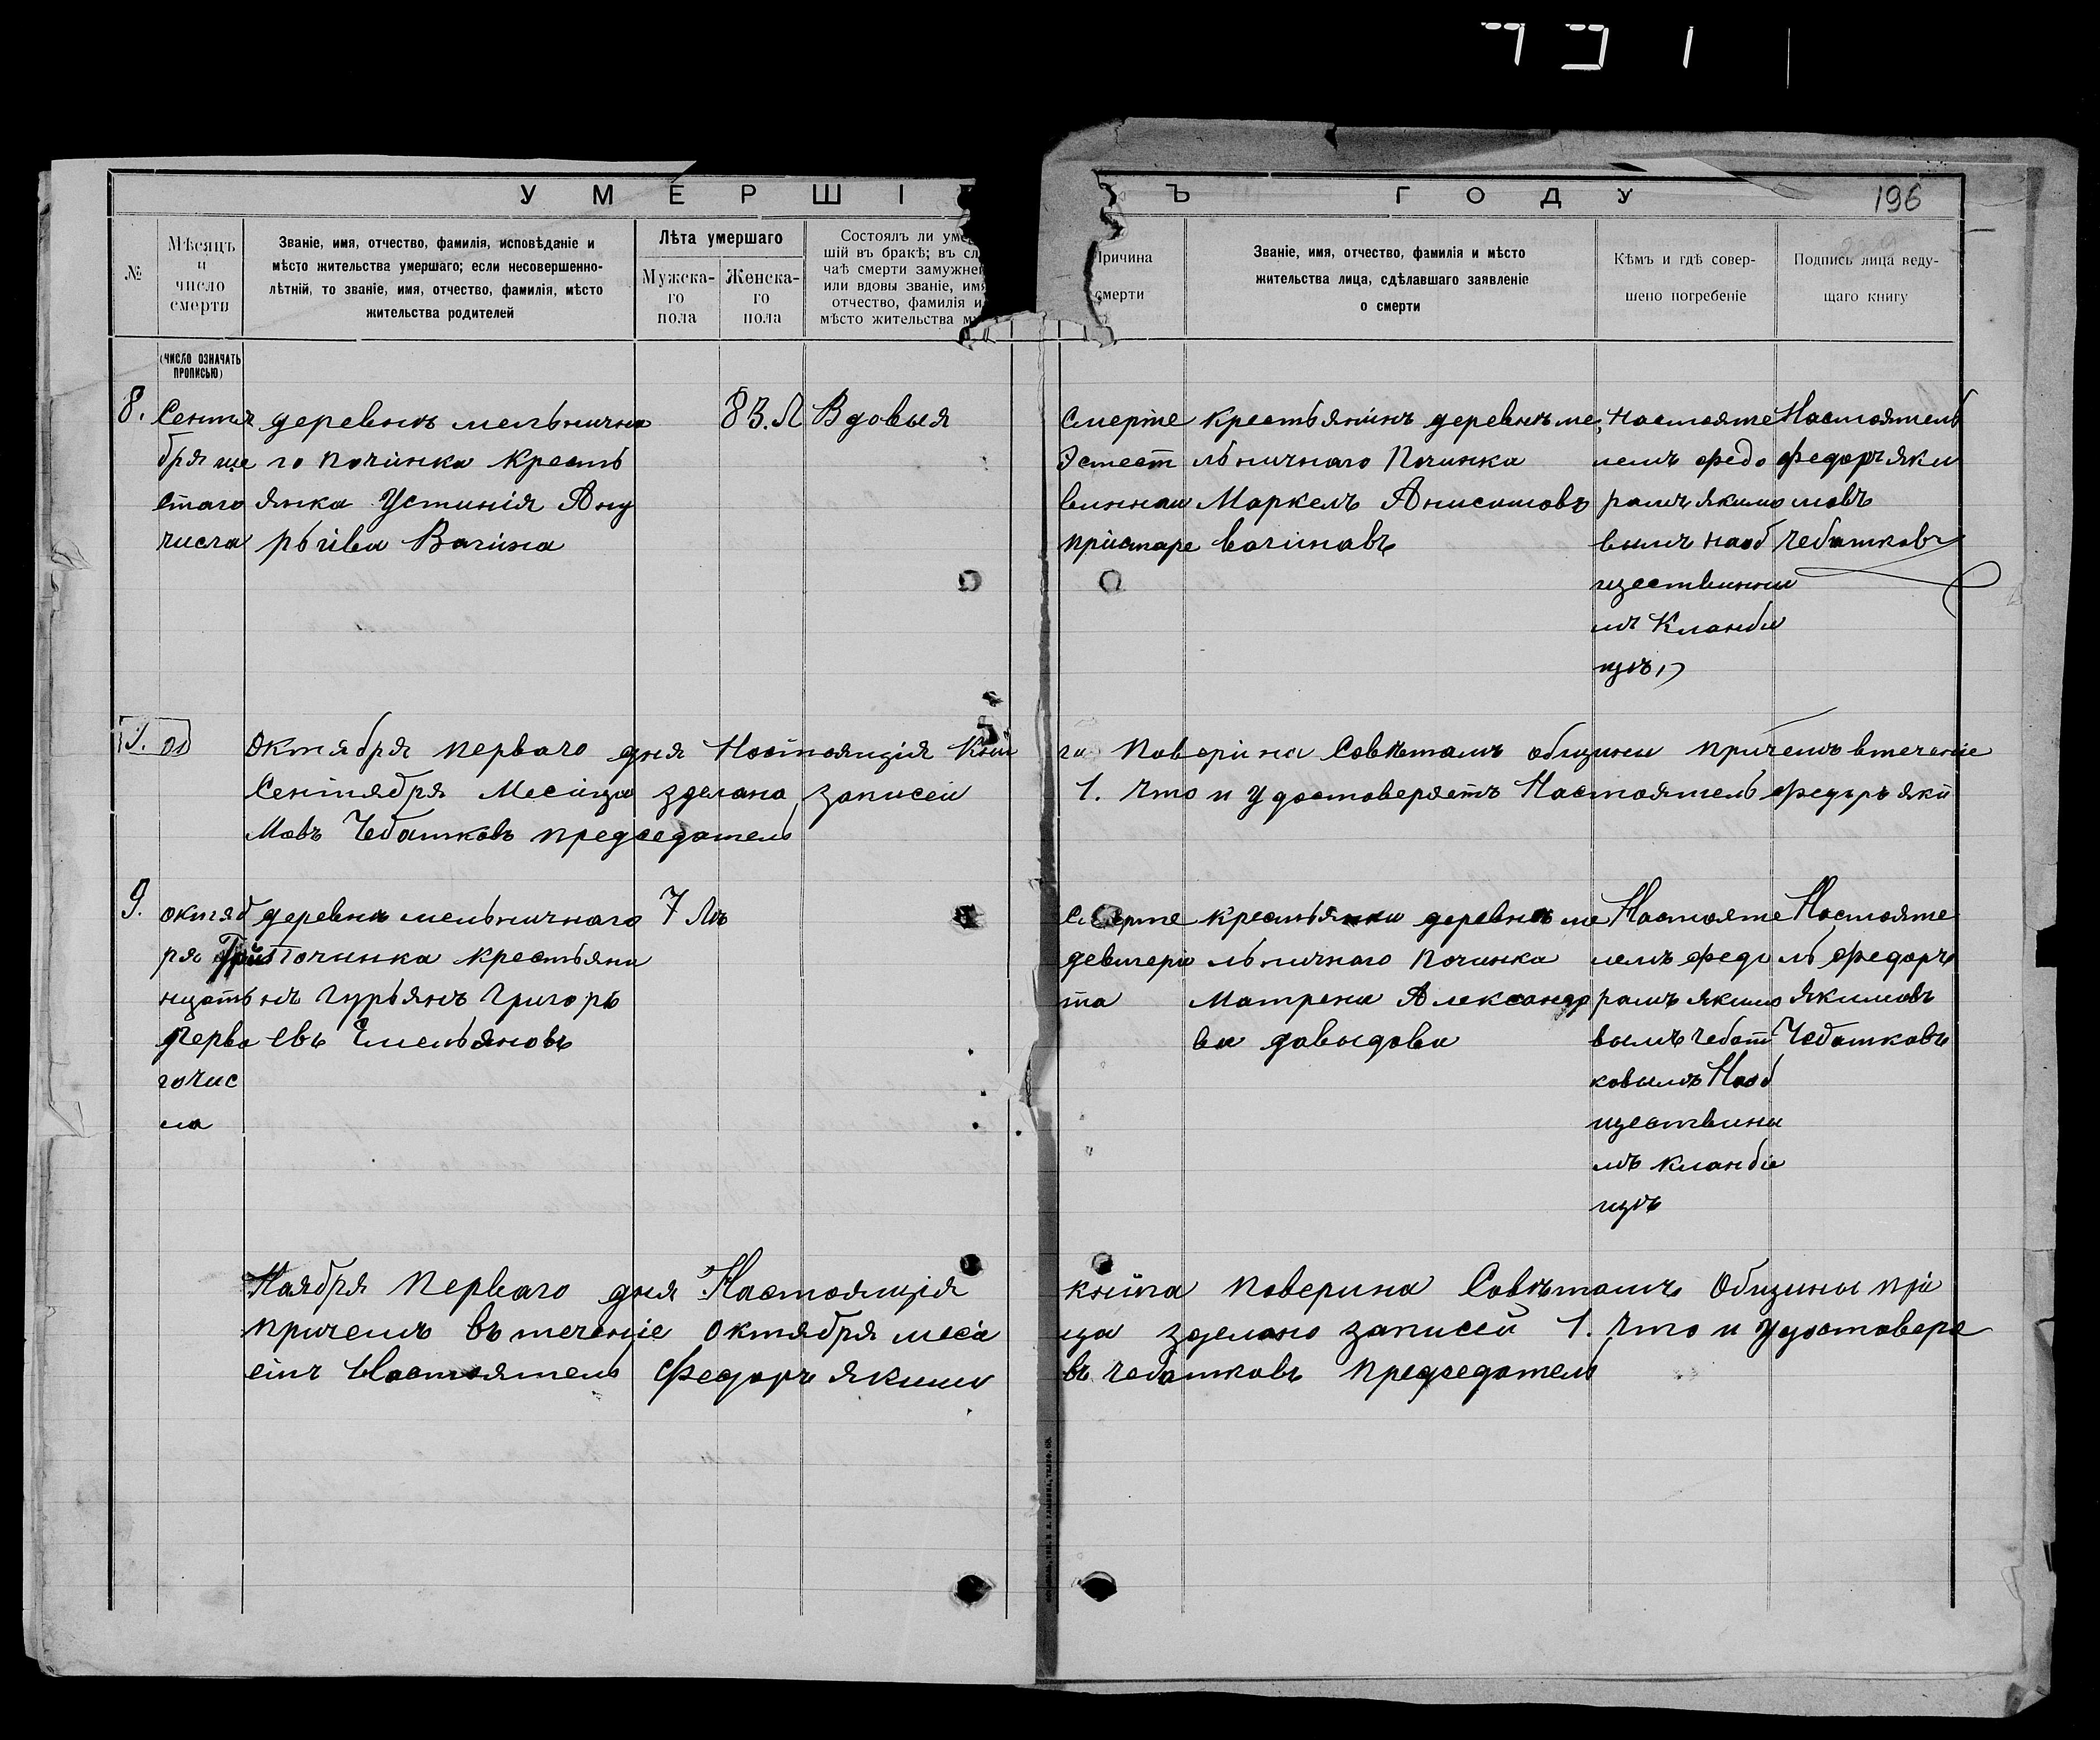 У М Е Р Ш І
Ъ Г О Д У
196
№
Мѣсяцъ
и
число
смерти
Званіе, имя, отчество, фамилія, исповѣданіе и
мѣсто жительства умершаго; если несовершенно-
лѣтній, то званіе, имя, отчество, фамилія, мѣсто
жительства родителей
Лѣта умершаго
Мужска-
го
пола
Женска-
го
пола
Состоялъ ли уме
шій въ бракѣ; въ сл
чаѣ смерти замужне
или вдовы званіе, имя
отчество, фамилія и
мѣсто жительства м
Причина
смерти
Званіе, имя, отчество, фамилія и мѣсто
жительства лица, сдѣлавшаго заявленіе
о смерти
Кѣмъ и гдѣ совер-
шено погребеніе
Подпись лица веду-
щаго книгу
(число означать
прописью)
8.
Сентя
бря ше
стаго
числа
деревнѣ мельнична
го починка Кресть
янка Устинія Ану
рьіва Вагина
83. Л
Вдовыя
Смерте
Эстест
виннаи
пристаре
крестьянинъ деревнѣ ме
льничнаго Починка
Маркелъ Анисимовъ
вагиновъ
настояте
лемъ федо
ромъ якимо
вымъ наоб
щественны
мъ Кланби
щѣ,
Настоятель
федоръ яки
мовъ
Чебатковъ
Октября перваго дня Настоящія Кни
га Поверіна Совѣтамъ общины причемъ втеченіе
Сентября Месіца зделано записей
1. что и удостоверяетъ Настоятель Федоръ яки
мовъ Чебатковъ председатель
9.
октяб
ря Три
цать
перва
гочис
ла
деревнѣ мельничнаго
починка крестьяни
нъ гурьянъ григорь
евъ Емельяновъ
7 Лѣ
Смерте
девтери
та
крестьянки деревнѣ ме
льничнаго Починка
Матрена Александро
ва давыдова
Настояте
лемъ федо
ромъ якимо
вымъ чебот
ковымъ Наоб
ществины
мъ кланби
щѣ
Настояте
ль Федоръ
Якимовъ
Чебатковъ
Наября перваго дня Настоящія
книга поверина Совѣтомъ Общины при
причемъ въ теченіе октября месі
ца зделано записей 1. что и удостовере
етъ Настоятель Федоръ якимо
въ чебатковъ председатель